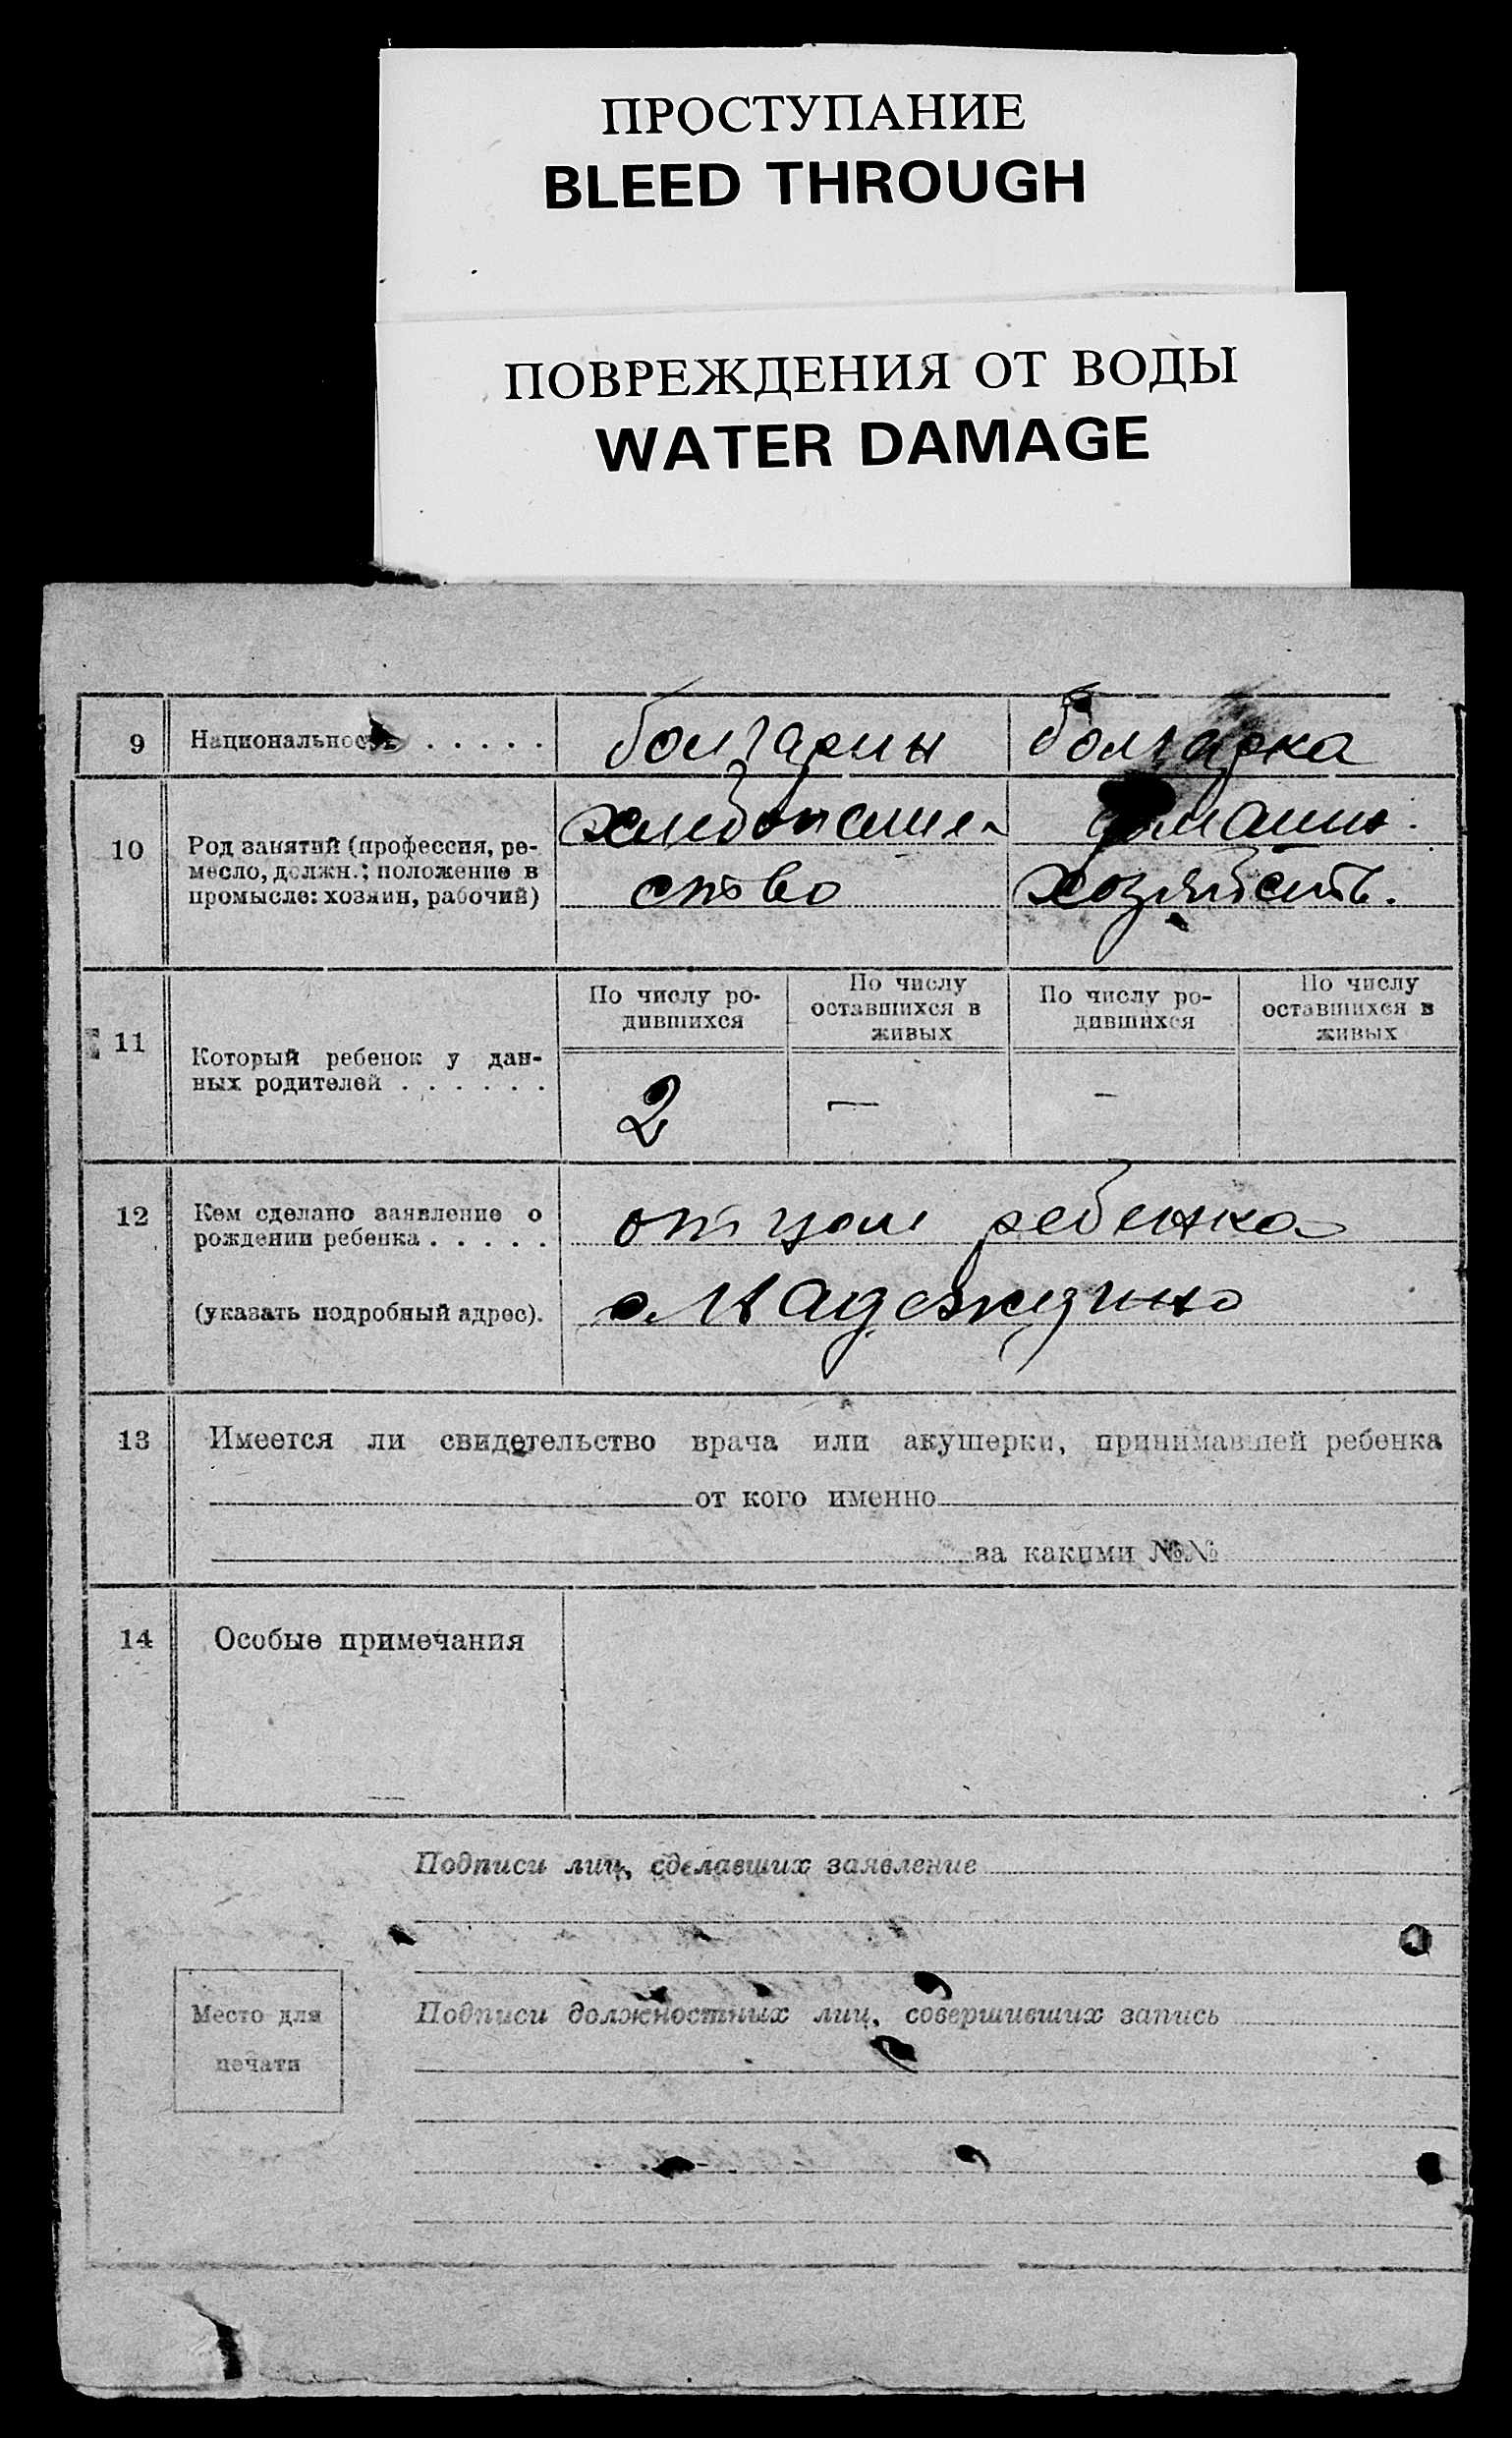 ПРОСТУПАНИЕ
BLEED THROUGH
ПОВРЕЖДЕНИЯ ОТ ВОДЫ
WATER DAMAGE
9 Национальность . . . . . болгарин болгарка
10 Род занятий (профессия, ре-
месло, должн.; положение в
промысле: хозяин, рабочий)
хлебопаше-
ство
домашн.
хозяйств.
11 Который ребенок у дан-
ных родителей . . . . . .
По числу ро-
дившихся
По числу
оставшихся в
живых
По числу ро-
дившихся
По числу
оставшихся в
живых
2 — -
12 Кем сделано заявление о
рождении ребенка . . . . .
(указать подробный адрес).
отцом ребенка
13 Имеется ли свидетельство врача или акушерки, принимавшей ребенка
от кого именно
за какими №№
14 Особые примечания
Подписи лиц, сделавших заявление
Место для
печати
Подписи должностных лиц, совершивших запись